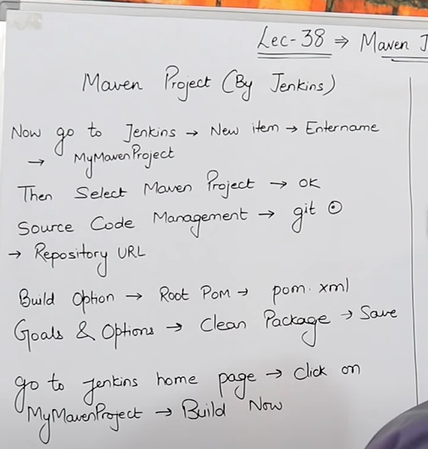 Lec-38 ⇒ Maven J
Maven Project (By Jenkins)
Now go to Jenkins → New item → Entername
→ MyMavenProject
Then Select Maven Project → OK
Source Code Management → git ⊙
→ Repository URL
Build Option → Root POM → pom.xml
Goals & Options → Clean Package → Save
go to Jenkins home page → Click on
MyMavenProject → Build Now